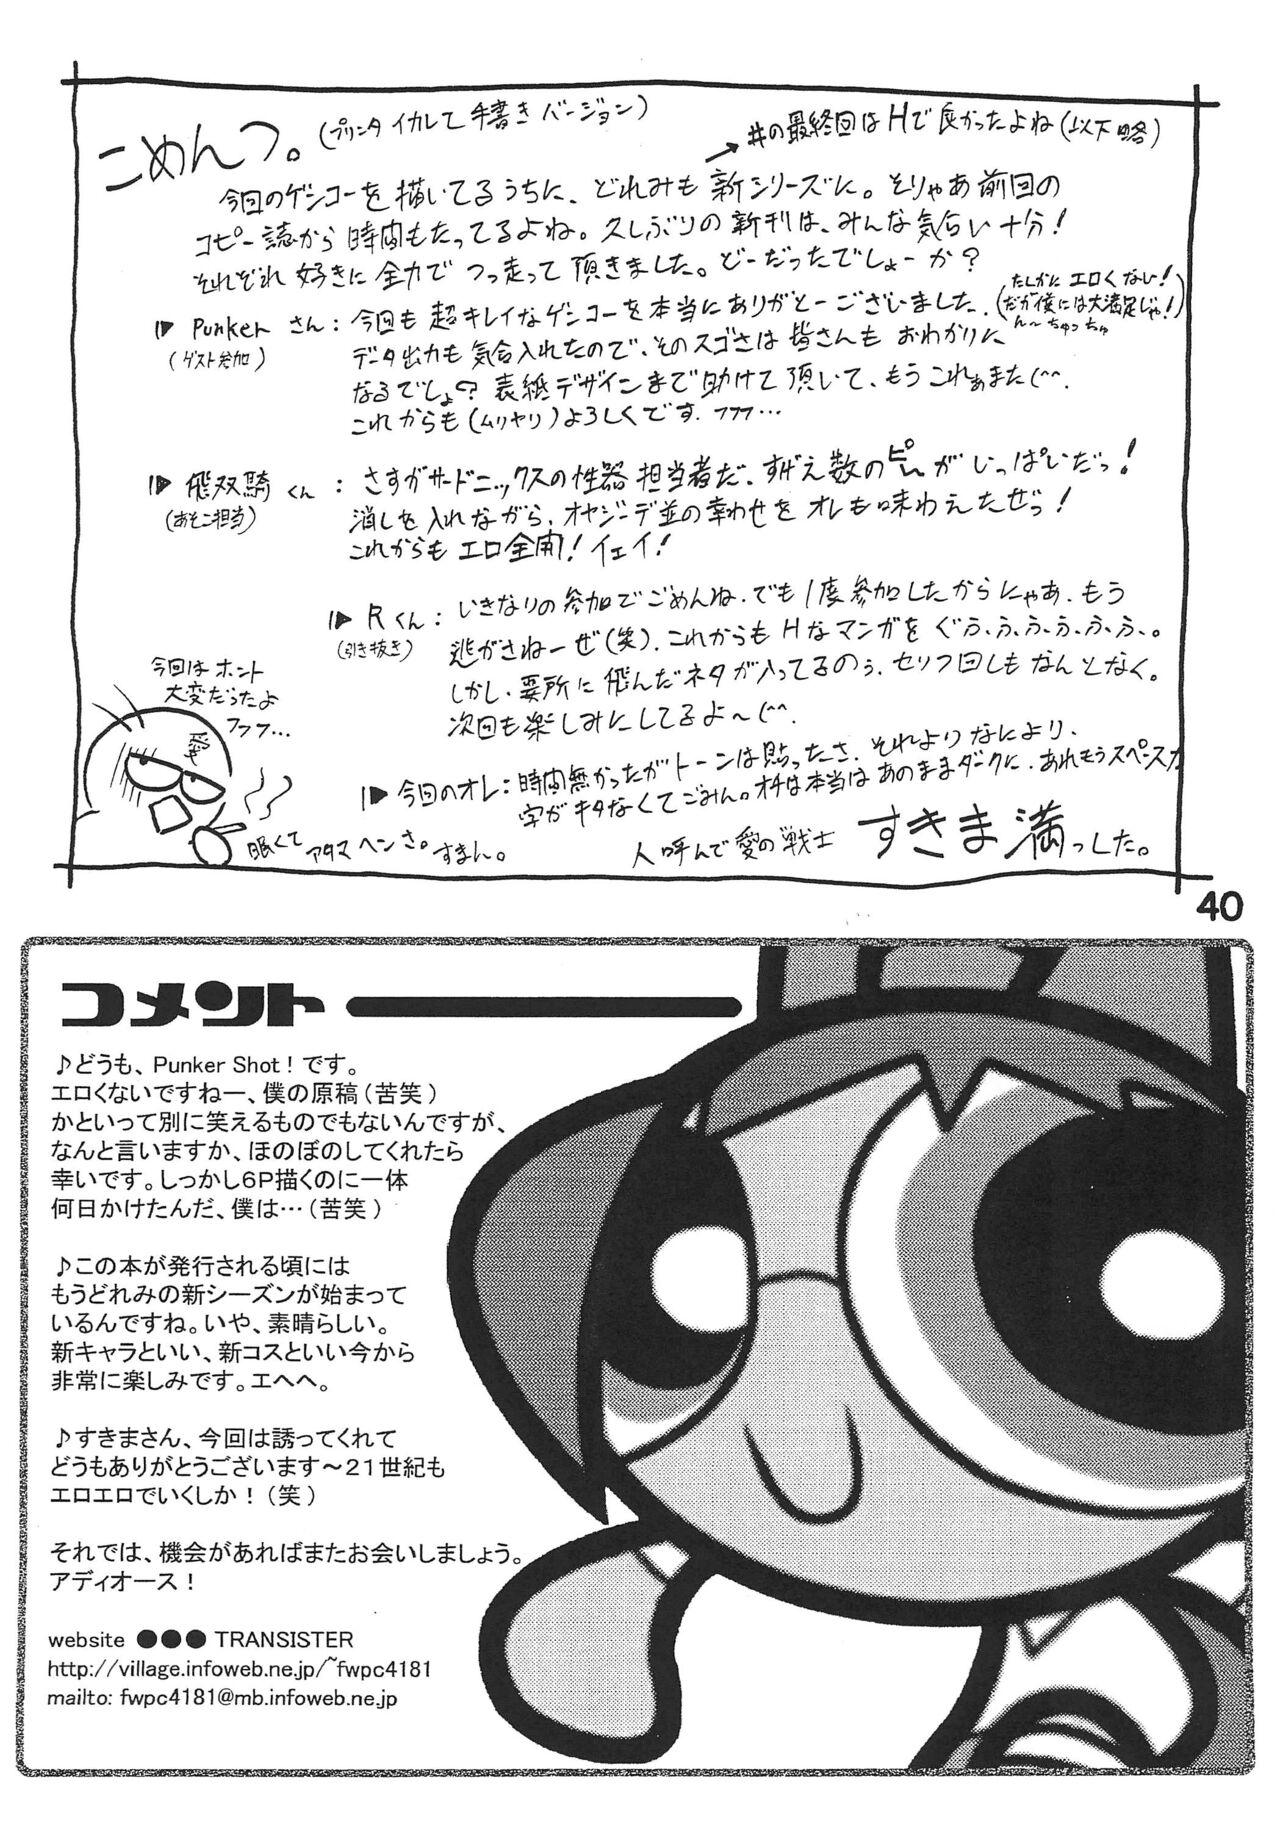 こめんつ。(プリンタイカレて手書きバージョン)
#の最終回はHで良かったよね(以下略)
今回のゲンコーを描いてるうちに、どれみも新シリーズに。そりゃあ前回の
コピー誌から時間もたってるよね。久しぶりの新刊は、みんな気合い十分!
それぞれ好きに全力でつっ走って頂きました。どーだったでしょーか?
Punkerさん:今回も超キレイなゲンコーを本当にありがとーございました.
(たしかにエロくない!
だが僕には大満足じゃ!)
ん〜ちゅっちゅ
(ゲスト参加)
データ出力も気合入れたので、そのスゴさは皆さんもおわかりに
なるでしょ?表紙デザインまで助けて頂いて、もうこれぁまた(^^.
これからも(ムリヤリ)よろしくです.フフフ…
飛双騎くん:さすがサードニックスの性器担当者だ、すげえ数のピーがいっぱいだっ!
(あそこ担当)
消しを入れながら、オヤジーデ並の幸わせをオレも味わえたぜっ!
これからもエロ全開!イェイ!
Rくん:いきなりの参加でごめんね.でも1度参加したからにゃあ.もう
(引き抜き)
逃がさねーぜ(笑).これからもHなマンガをぐふ、ふ、ふ、ふ、ふ、ふ、。
しかし、要所に飛んだネタが入ってるのぅ、セリフ回しもなんとなく。
次回も楽しみにしてるよ〜(^^.
今回はホント
大変だったよ
フフフ…
今回のオレ:時間無かったがトーンは貼ったさ.それよりなにより、
字がキタなくてごみん。オチは本当はあのままダークに、あれもうスペースが
眠くてアタマヘンさ。すまん。
人呼んで愛の戦士 すきま満っした。
40
コメント
♪どうも、Punker Shot!です。
エロくないですねー、僕の原稿(苦笑)
かといって別に笑えるものでもないんですが、
なんと言いますか、ほのぼのしてくれたら
幸いです。しっかし6P描くのに一体
何日かけたんだ、僕は…(苦笑)
♪この本が発行される頃には
もうどれみの新シーズンが始まって
いるんですね。いや、素晴らしい。
新キャラといい、新コスといい今から
非常に楽しみです。エヘヘ。
♪すきまさん、今回は誘ってくれて
どうもありがとうございます〜21世紀も
エロエロでいくしか!(笑)
それでは、機会があればまたお会いしましょう。
アディオース!
website ●●● TRANSISTER
http://village.infoweb.ne.jp/~fwpc4181
mailto: fwpc4181@mb.infoweb.ne.jp